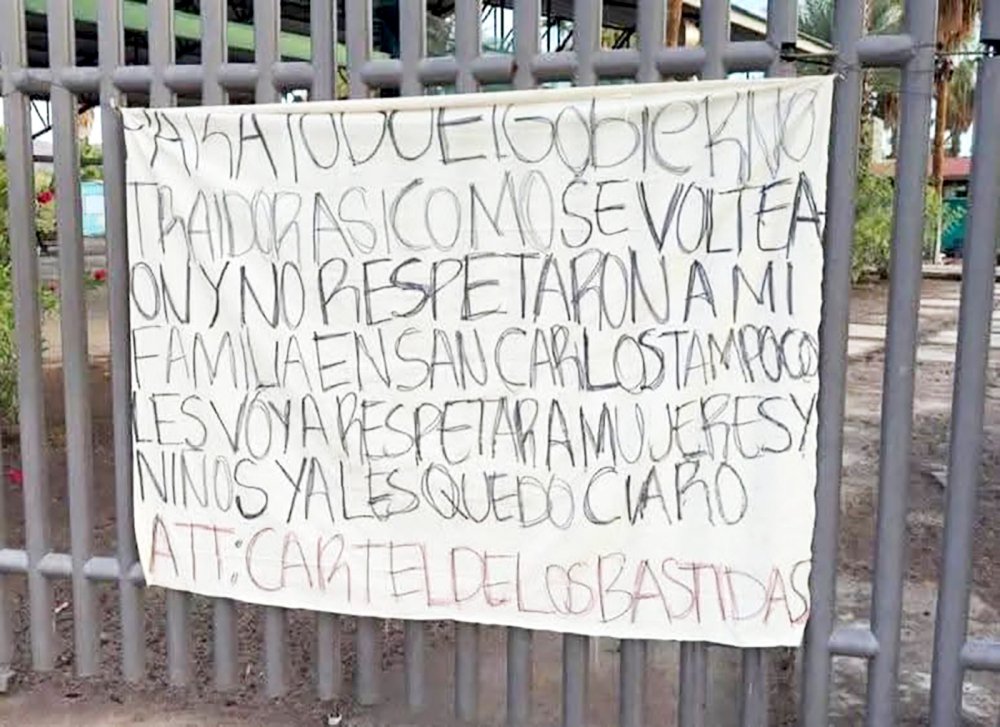 PARA TODO El GObieRNO
TRAIDOR ASI COMO SE VOLTEA
ON Y NO RESPETARON A MI
FAMILIA EN SAN CARLOS TAMPOCO
LES VOY A RESPETAR A MUJERES Y
NINOS YA LES QUEDO ClARO
ATT: CARTEL DE LOS BASTIDAS